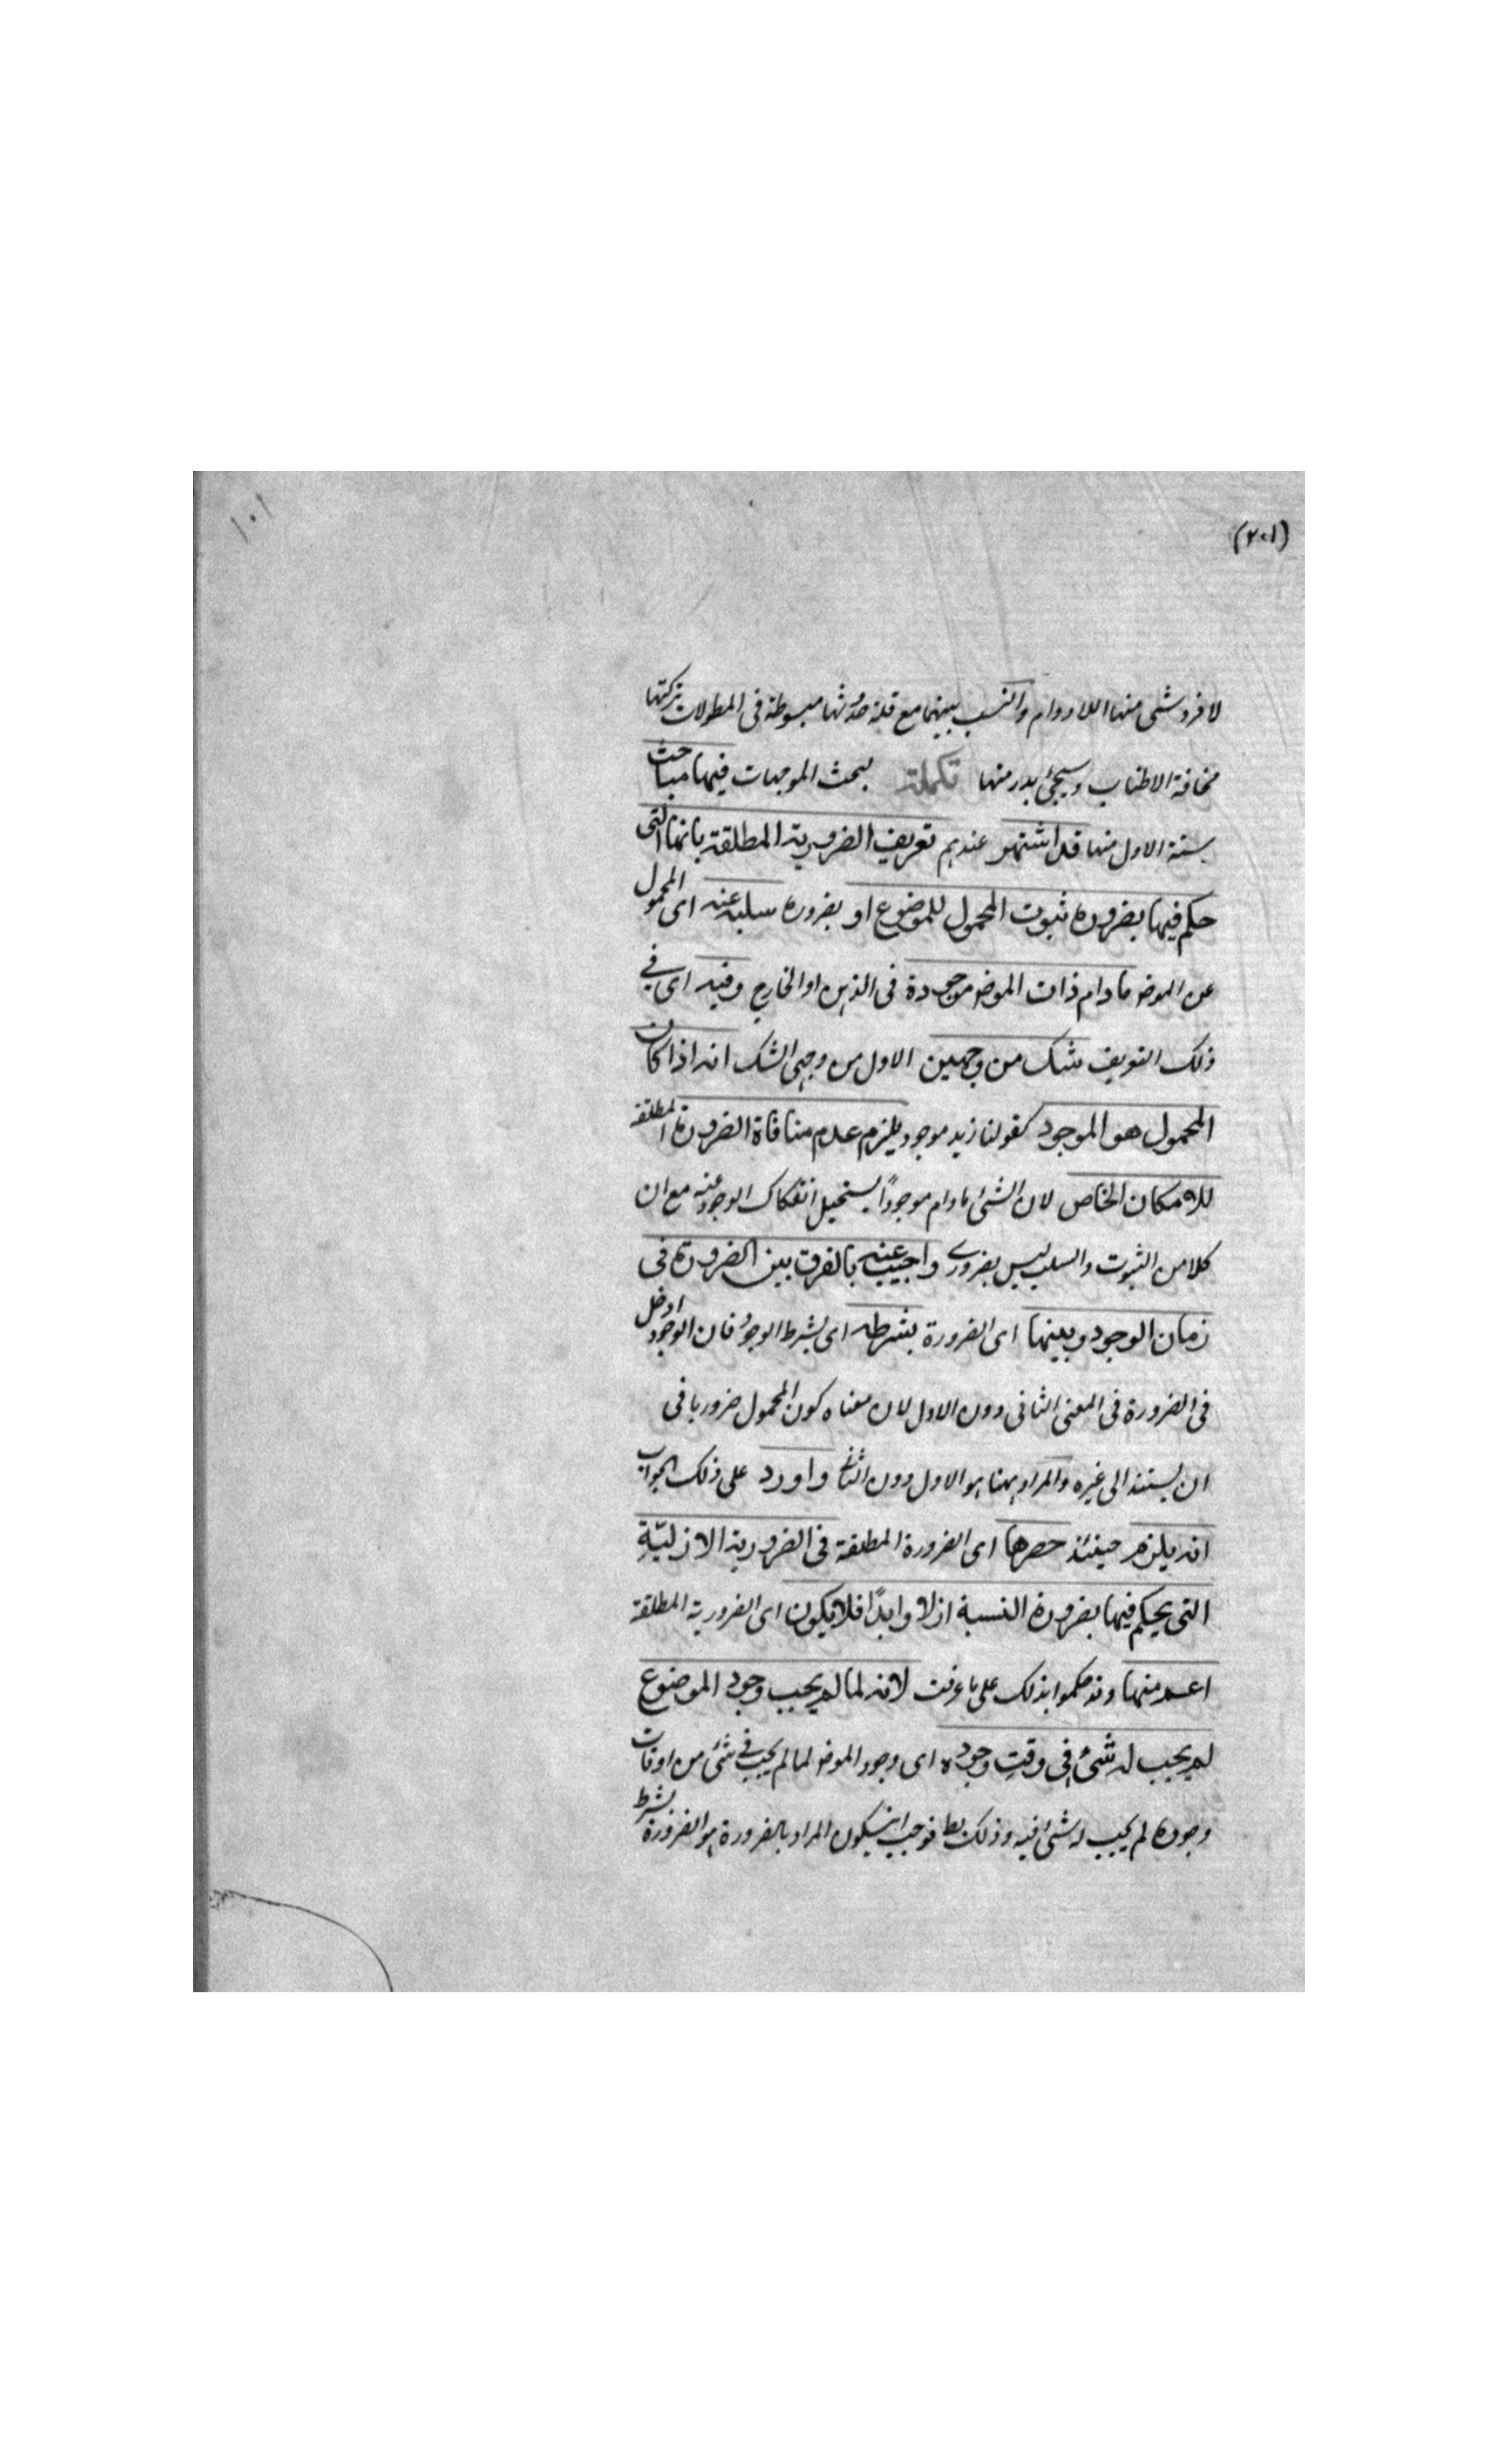 ١٠١
(٢٠١)
لا فرد شئ منها اللادوام والنسب بينهما مع قلة مبسوطة فى المطولات تركتها
مخافة الاطناب وسيجئ بدر منها تكملة لبحث الموجهات فيها مباحث
ستة الاول منها قد اشتهر عندهم تعريف الضرورية المطلقة بانها التى
حكم فيها بضرورة ثبوت المحمول للموضوع او بضرورة سلبه عنه اى المحمول
عن الموضو مادام ذات الموضو موجودة فى الذهن او الخارج وفيه اى فى
ذلك التعريف شك من وجهين الاول من وجهى الشك انه اذا كان
المحمول هو الموجود كقولنا زيد موجود يلزم عدم منافاة الضرورة المطلقة
للامكان الخاص لان الشئ مادام موجودًا يستحيل انفكاك الوجود عنه مع ان
كلا من الثبوت والسلب ليس بضرورى واجيب عنه بالفرق بين الضرورة فى
زمان الوجود وبينها اى الضرورة بشرطه اى بشرط الوجود فان الوجود ادخل
فى الضرورة فى المعنى الثانى دون الاول لان معناه كون المحمول ضروريا فى
ان يستند الى غيره والمراد ههنا هو الاول دون الثانى واورد على ذلك الجواب
انه يلزم حينئذ حصرها اى الضرورة المطلقة فى الضرورية الازليّةِ
التى يحكم فيها بضرورة النسبة ازلا وابدًا فلا يكون اى الضرورية المطلقة
اعم منها وقد حكموا بذلك على ما عرفت لانه لما لم يجب وجود الموضوع
لم يجب له شئ فى وقتِ وجوده اى وجود الموضو لما لم يجب فى شئ من اوقات
وجوده لم يجب له شئ فيه وذلك بط فوجب ان يكون المراد بالضرورة هو الضرورة بشرط